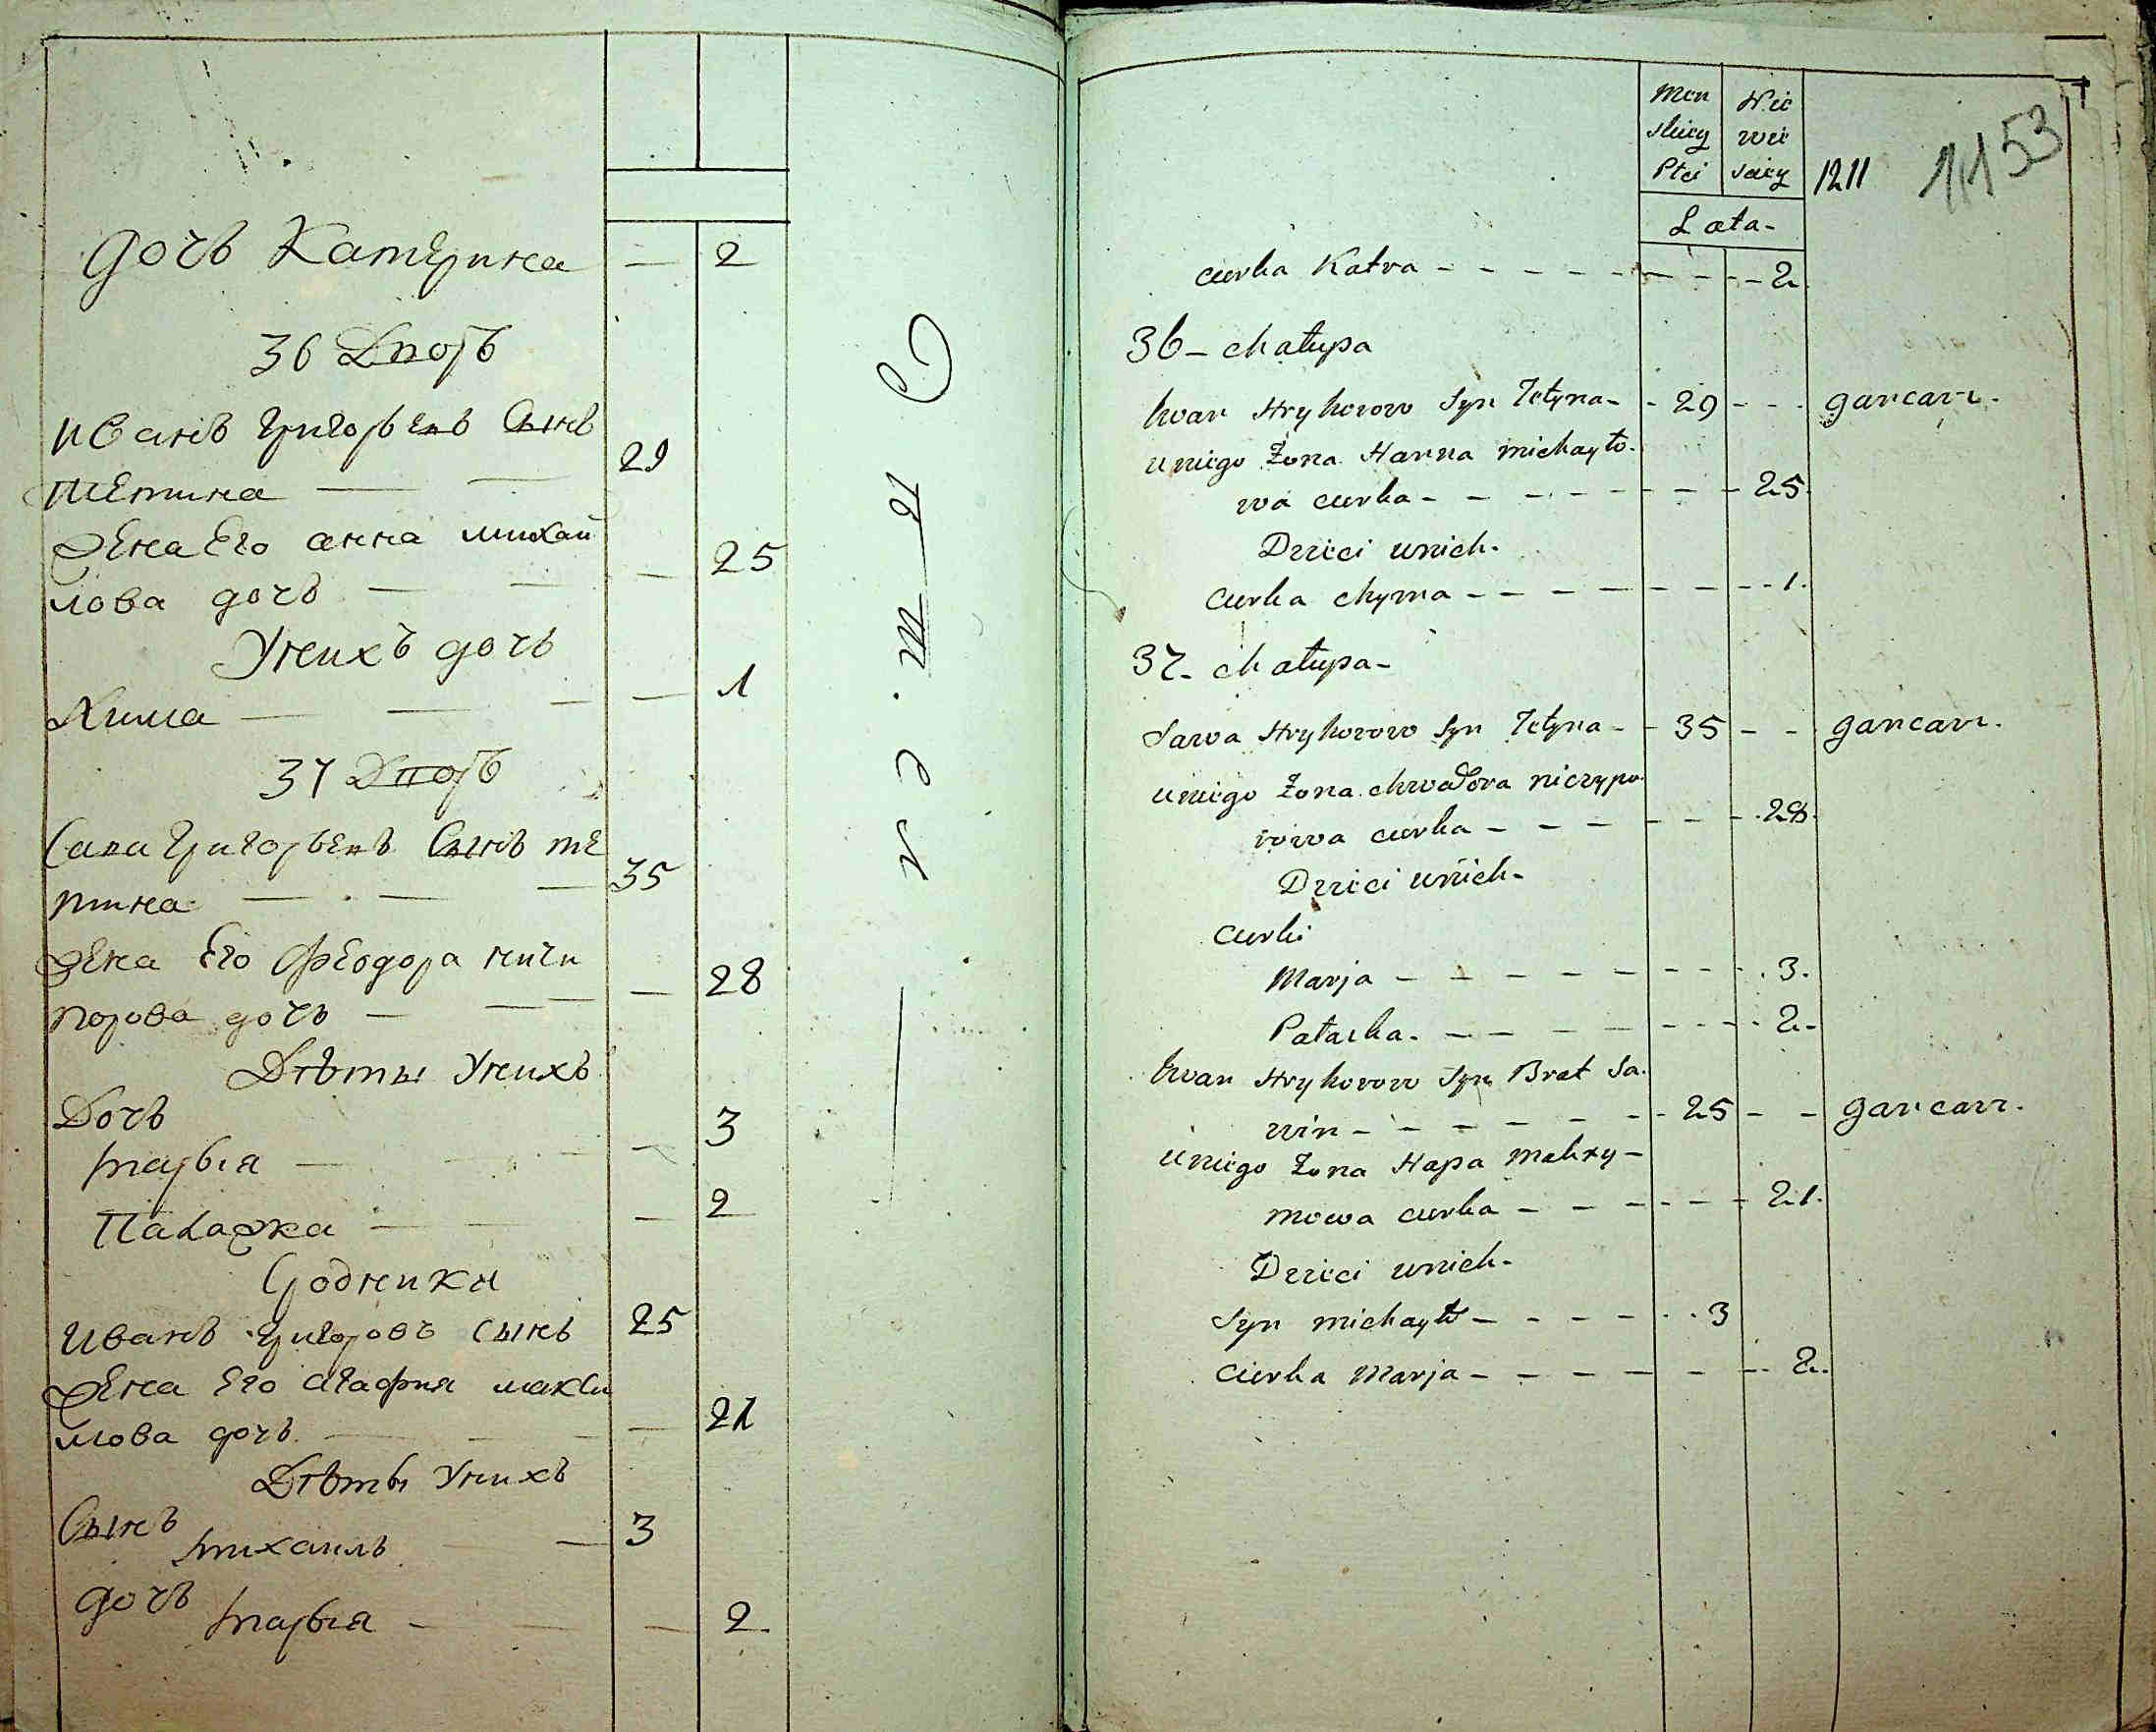 дочъ Катерина — 2
36 Дворъ
Иванъ Григорьевъ Сынъ
Тетина — — 29
Жена Его анна михай
лова дочъ — — — 25
Унихъ дочъ
Хима — — — — 1
37 Дворъ
Сава Григорьевъ Сынъ те
тина — — — 35
Жена Его Феодора ничи
порова дочъ — — — 28
Дѣты Унихъ
Дочъ
Марья — — 3
Палажка — — — 2
Сродники
Иванъ Григоровъ Сынъ 25
Жена Его агафия макси
мова дочъ — — — 21
Дѣты Унихъ
Сынъ
Михаилъ — 3
дочъ
Марья — — — 2.
Men Nie
skiey wie
Płci sciey 1211 1153
Lata-
curka Katra - - - - - - - - 2
36 - chałupa
Iwan Hryhorow Syn Tetyna - - 29 - - - garcarz.
u niego Żona Hanna michayło-
wa curka - - - - - - - - 25.
Dzieci unich-
Curka chyma - - - - - - - - 1.
37 - chałupa -
Sawa Hryhorow Syn Tetyna - - 35 - - garcarz.
u niego Żona chwadora niczypo-
rowa curka - - - - - - 28.
Dzieci unich-
Curki
Marja - - - - - - - - 3.
Pałaska. - - - - - - - - 2.
Iwan Hryhorow Syn Brat Sa-
win - - - - - - - 25 - - garcarz.
u niego Żona Hapa Makxy-
mowa curka - - - - - - 21.
Dzieci unich-
Syn michayło - - - - - 3
Curka Marja - - - - - - - 2.